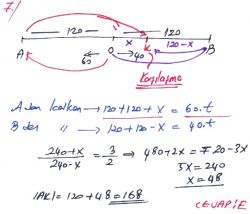 7/
120 120
A O x K 120-x B
60 40
Karşılaşma
A dan kalkan → 120+120+x = 60.t
B den " → 120+120-x = 40.t
240+x / 240-x = 3/2 → 480+2x = 720-3x
5x = 240
x = 48
|AK| = 120+48 = 168
CEVAP: E